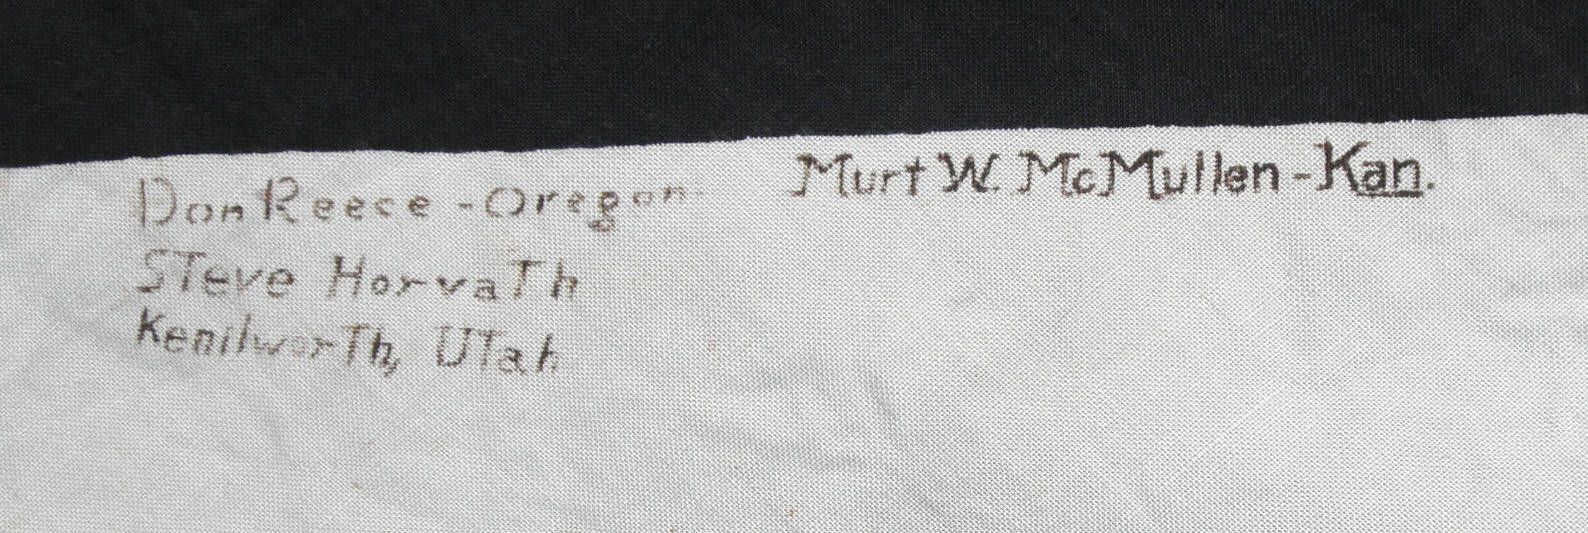 Don Reese - Oregon
Murt W. McMullen - Kan.
STeve HorvaTh
KenilworTh, UTah